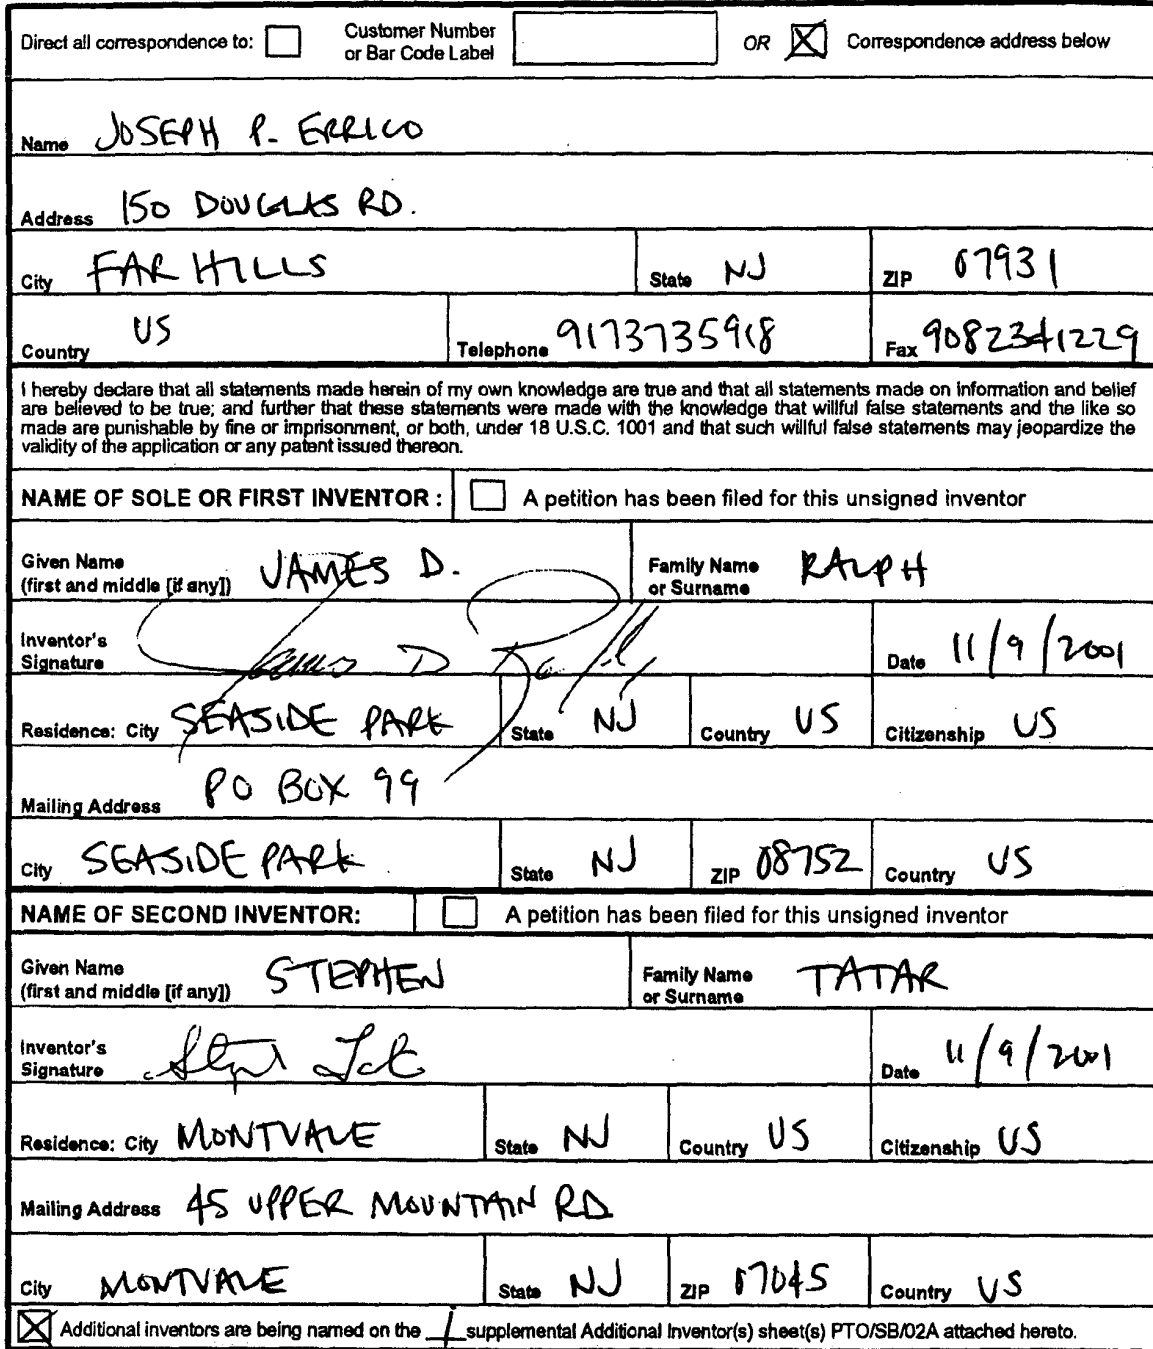 Direct all correspondence to: Customer Number or Bar Code Label OR Correspondence address below
Name JOSEPH P. ERRICO
Address 150 DOUGLAS RD.
City FAR HILLS State NJ ZIP 07931
Country US Telephone 9173735918 Fax 9082341229
I hereby declare that all statements made herein of my own knowledge are true and that all statements made on information and belief
are believed to be true; and further that these statements were made with the knowledge that willful false statements and the like so
made are punishable by fine or imprisonment, or both, under 18 U.S.C. 1001 and that such willful false statements may jeopardize the
validity of the application or any patent issued thereon.
NAME OF SOLE OR FIRST INVENTOR : A petition has been filed for this unsigned inventor
Given Name (first and middle [if any]) JAMES D. Family Name or Surname RALPH
Inventor's Signature James D Ralph Date 11/9/2001
Residence: City SEASIDE PARK State NJ Country US Citizenship US
Mailing Address PO BOX 99
City SEASIDE PARK State NJ ZIP 08752 Country US
NAME OF SECOND INVENTOR: A petition has been filed for this unsigned inventor
Given Name (first and middle [if any]) STEPHEN Family Name or Surname TATAR
Inventor's Signature Date 11/9/2001
Residence: City MONTVALE State NJ Country US Citizenship US
Mailing Address 45 UPPER MOUNTAIN RD
City MONTVALE State NJ ZIP 07045 Country US
Additional inventors are being named on the 1 supplemental Additional Inventor(s) sheet(s) PTO/SB/02A attached hereto.